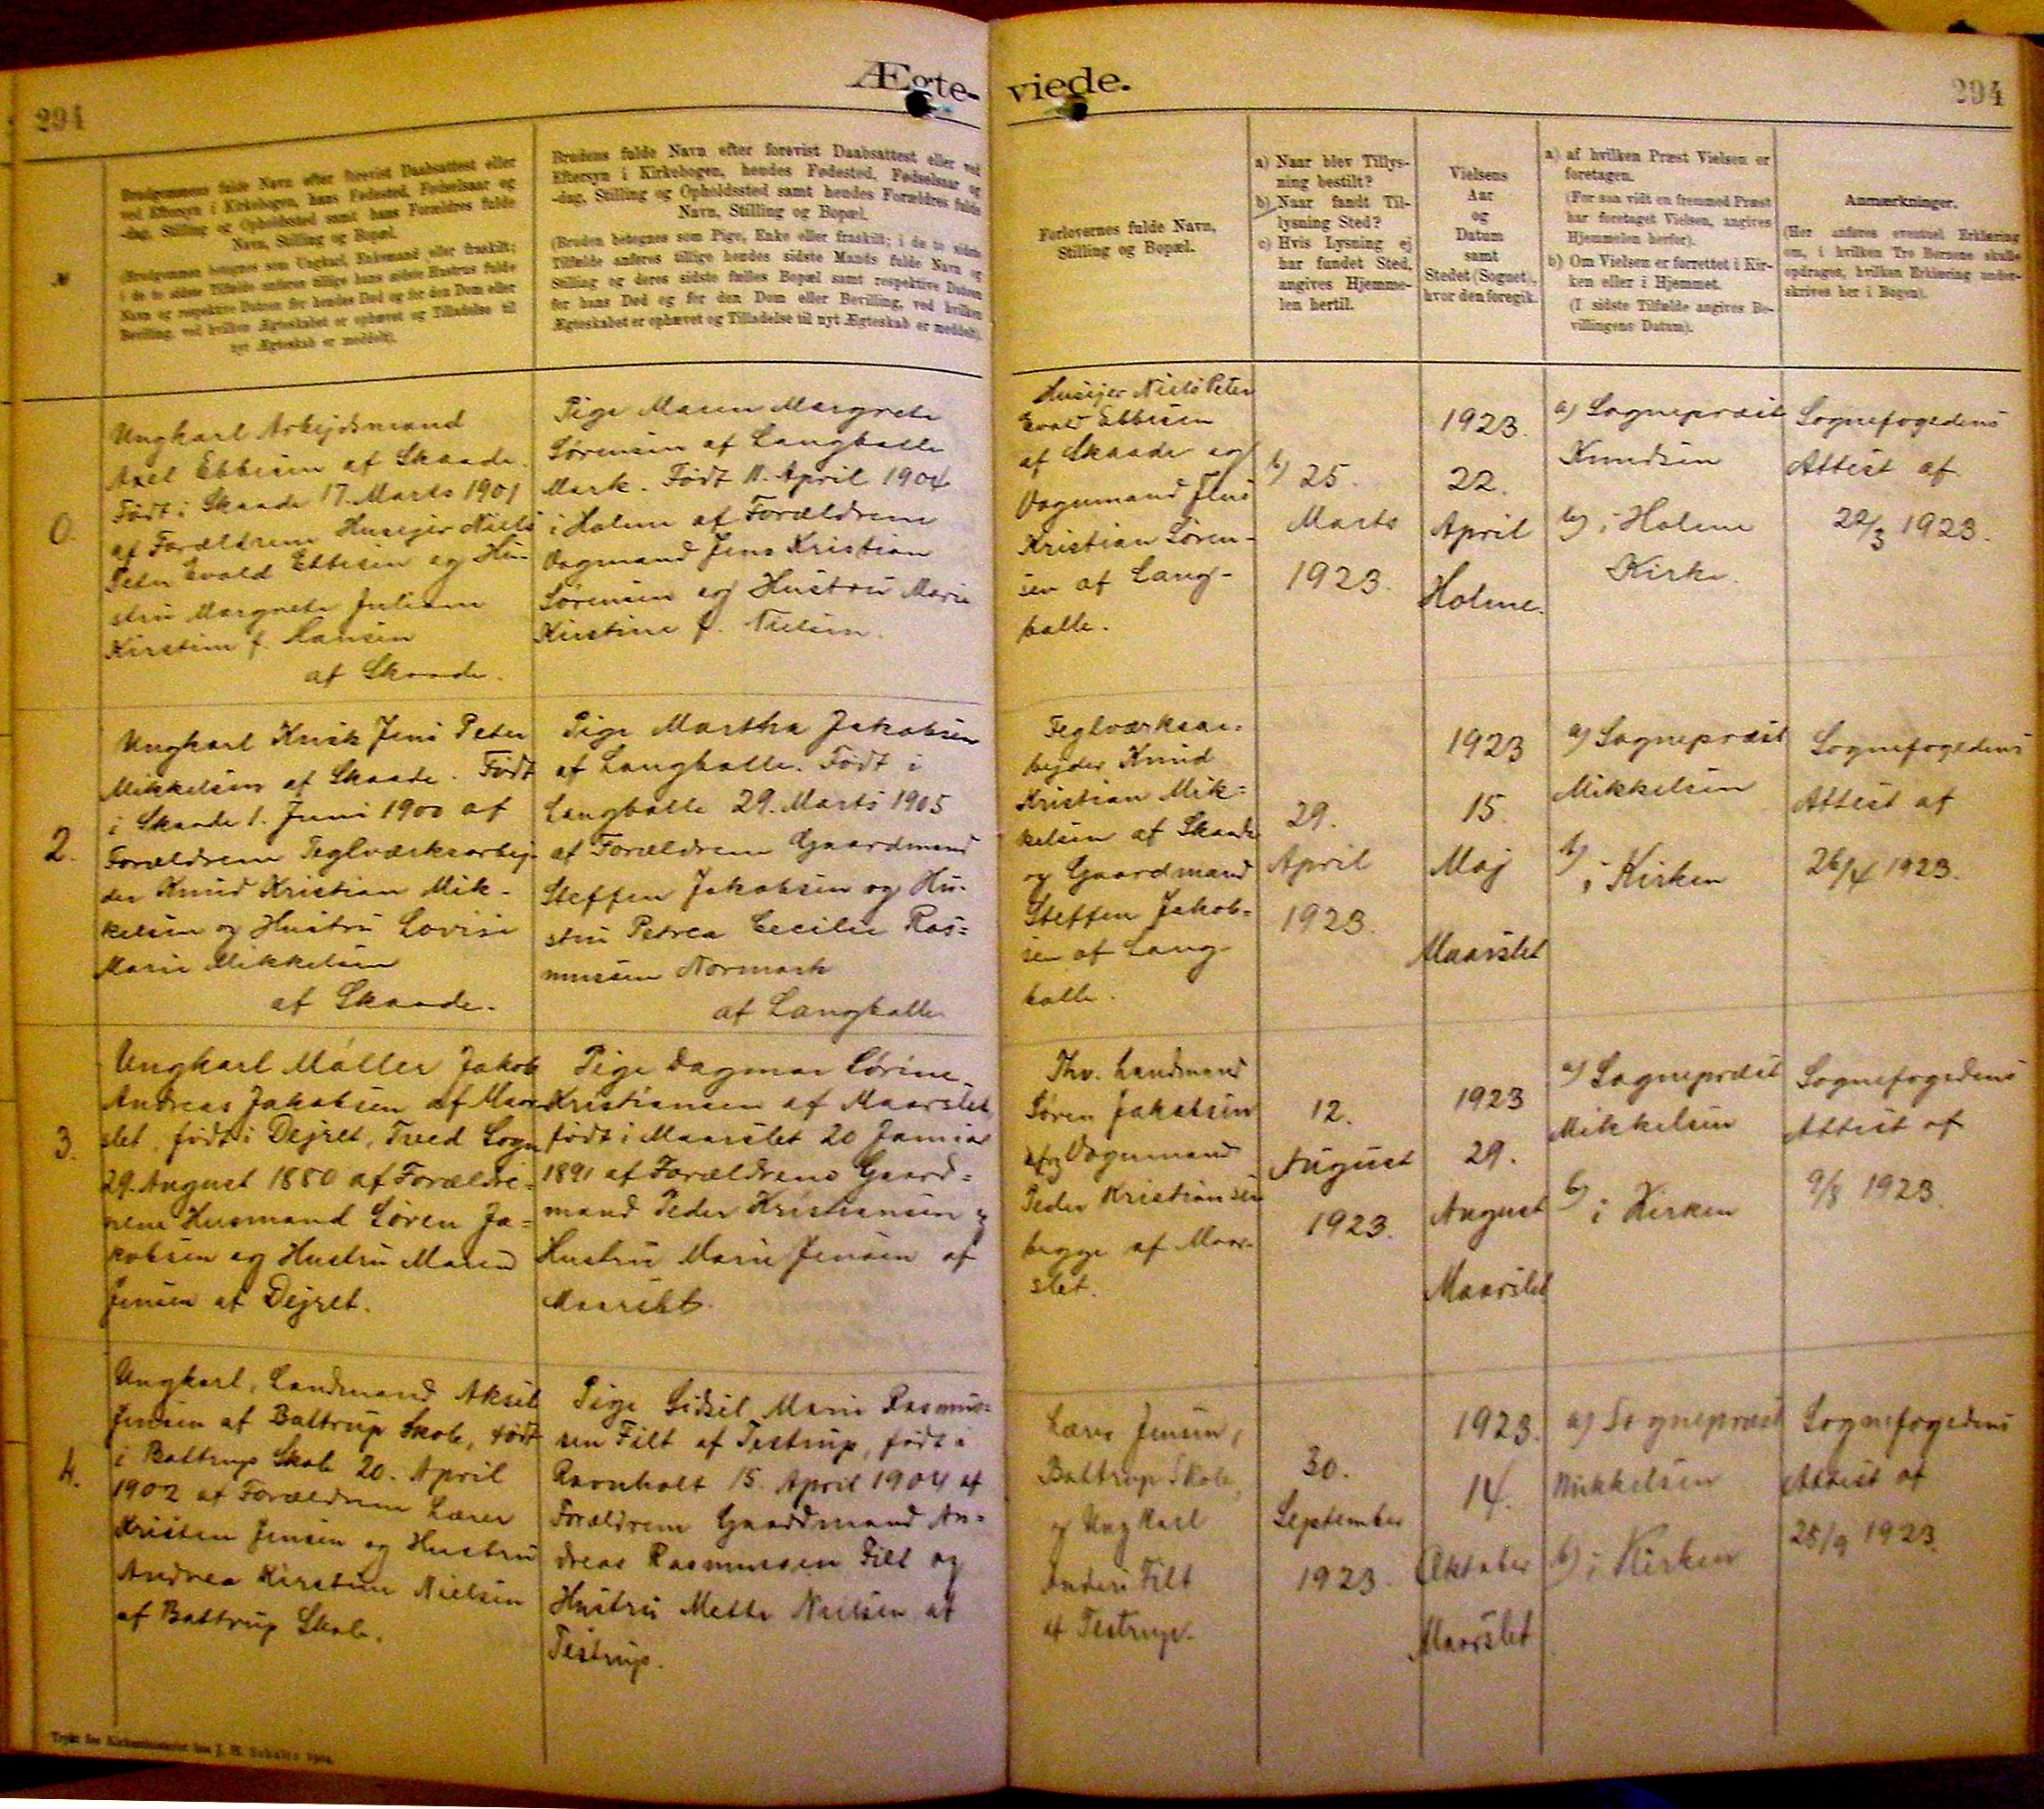 294
Ægte-
viede.
294
№
Brudgommens fulde Navn efter forevist Daabsattest eller
ved Eftersyn i Kirkebogen, hans Fødested, Fødselsaar og
-dag, Stilling og Opholdssted samt hans Forældres fulde
Navn, Stilling og Bopæl.
(Brudgommen betegnes som Ungkarl, Enkemand eller fraskilt;
i de to sidste Tilfælde anføres tillige hans sidste Hustrus fulde
Navn og respektive Datoen for hendes Død og for den Dom eller
Bevilling, ved hvilken Ægteskabet er ophævet og Tilladelse til
nyt Ægteskab er meddelt).
Brudens fulde Navn efter forevist Daabsattest eller ved
Eftersyn i Kirkebogen, hendes Fødested, Fødselsaar og
-dag, Stilling og Opholdssted samt hendes Forældres fulde
Navn, Stilling og Bopæl.
(Bruden betegnes som Pige, Enke eller fraskilt; i de to sidste
Tilfælde anføres tillige hendes sidste Mands fulde Navn og
Stilling og deres sidste fælles Bopæl samt respektive Datoen
for hans Død og for den Dom eller Bevilling, ved hvilken
Ægteskabet er ophævet og Tilladelse til nyt Ægteskab er meddelt).
Forlovernes fulde Navn,
Stilling og Bopæl.
a) Naar blev Tillys-
ning bestilt?
b) Naar fandt Til-
lysning Sted?
c) Hvis Lysning ej
har fundet Sted,
angives Hjemme-
len hertil.
Vielsens
Aar
og
Datum
samt
Stedet (Sognet),
hvor den foregik.
a) af hvilken Præst Vielsen er
foretagen.
(For saa vidt en fremmed Præst
har foretaget Vielsen, angives
Hjemmelen herfor).
b) Om Vielsen er forrettet i Kir-
ken eller i Hjemmet.
(I sidste Tilfælde angives Be-
villingens Datum).
Anmærkninger.
(Her anføres eventuel Erklæring
om, i hvilken Tro Børnene skulle
opdrages, hvilken Erklæring under-
skrives her i Bogen).
0.
Ungkarl Arbejdsmand
Axel Ebbesen af Skaade.
Født i Skaade 17. Marts 1901
af Forældrene Husejer Niels
Peter Evald Ebbesen og Hu-
stru Margrete Juliane
Kirstine f. Hansen
af Skaade.
Pige Maren Margrete
Sørensen af Langballe
Mark. Født 11. April 1904
i Holme af Forældrene
Vognmand Jens Kristian
Sørensen og Hustru Marie
Kirstine f. Nielsen.
Husejer Niels Peter
Evald Ebbesen
af Skaade og
Vognmand Jens
Kristian Søren-
sen af Lang-
balle.
b) 25.
Marts
1923.
1923.
22.
April
Holme.
a) Sognepræst
Knudsen
b) i Holme
Kirke.
Sognefogedens
Attest af
22/3 1923.
2.
Ungkarl Kusk Jens Peter
Mikkelsen af Skaade. Født
i Skaade 1. Juni 1900 af
Forældrene Teglværksarbej-
der Knud Kristian Mik-
kelsen og Hustru Lovise
Marie Mikkelsen
af Skaade.
Pige Martha Jakobsen
af Langballe. Født i
Langballe 29. Marts 1905
af Forældrene Gaardmand
Steffen Jakobsen og Hu-
stru Petrea Cecilie Ras=
mussen Normark
af Langballe
Teglværksar=
bejder Knud
Kristian Mik=
kelsen af Skaade
og Gaardmand
Steffen Jakob=
sen af Lang-
balle.
29.
April
1923.
1923
15.
Maj
Maarslet
a) Sognepræst
Mikkelsen
b) i Kirken
Sognefogedens
Attest af
26/4 1923.
3.
Ungkarl Møller Jakob
Andreas Jakobsen af Maar
slet, født i Dejret, Tved Sogn
29. August 1880 af Forældre=
nene Husmand Søren Ja=
kobsen og Hustru Maren
Jensen af Dejret.
Pige Dagmar Sørine
Kristiansen af Maarslet,
født i Maarslet 20 Januar
1891 af Forældrene Gaard=
mand Peder Kristiansen og
Hustru Marie Jensen af
Maarslet.
Fhv. Landmand
Søren Jakobsen
og Vognmand
Peder Kristiansen
begge af Maar-
slet.
12.
August
1923.
1923
29.
August
Maarslet
a) Sognepræst
Mikkelsen
b) i Kirken
Sognefogedens
Attest af
9/8 1923.
4.
Ungkarl, Landmand Aksel
Jensen af Battrup Skole, født
i Battrup Skole 20. April
1902 af Forældrene Lærer
Kristen Jensen og Hustru
Andrea Kirstine Nielsen
af Battrup Skole.
Pige Sidsel Marie Rasmus=
sen Filt af Testrup, født i
Ravnholt 15. April 1904 af
Forældrene Gaardmand An=
dreas Rasmussen Filt og
Hustru Mette Nielsen af
Testrup.
Lærer Jensen,
Battrup Skole,
og Ungkarl
Anders Filt
af Testrup.
30.
September
1923.
1923.
14.
Oktober
Maarslet
a) Sognepræst
Mikkelsen
b) i Kirken
Sognefogedens
Attest af
25/9 1923.
Trykt for Kirkeministeriet hos J. H. Schultz